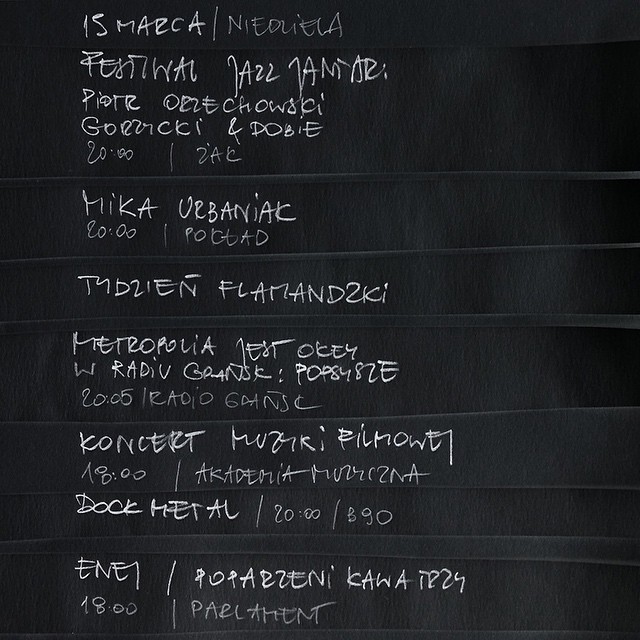 15 MARCA | NIEDZIELA
FESTIWAL JAZZ JANTAR:
PIOTR ORZECHOWSKI
GORZYCKI & DOBIE
20:00 | ŻAK
MIKA URBANIAK
20:00 | POKŁAD
TYDZIEŃ FLAMANDZKI
METROPOLIA JEST OKEY
W RADIU GDAŃSK: POPSYSZE
20:05 | RADIO GDAŃSK
KONCERT MUZYKI FILMOWEJ
18:00 | AKADEMIA MUZYCZNA
DOCK METAL / 20:00 / B90
ENEJ / POPARZENI KAWĄ TRZY
18:00 | PARLAMENT